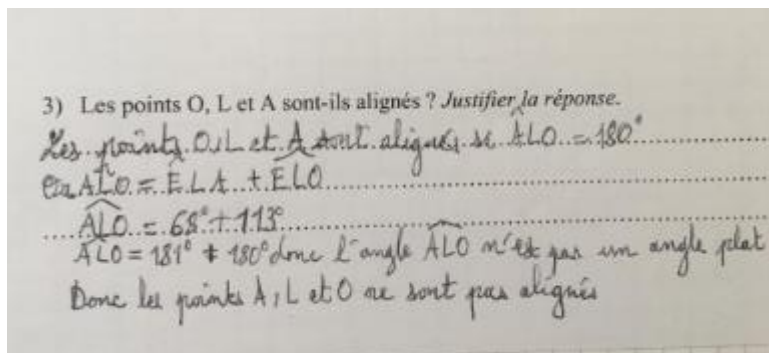 3) Les points O, L et A sont-ils alignés ? Justifier la réponse.
Les points O, L et A sont alignés si ALO = 180°
Or ALO = ELA + ELO
ALO = 68° + 113°
ALO = 181° ≠ 180° donc l'angle ALO n'est pas un angle plat
Donc les points A, L et O ne sont pas alignés